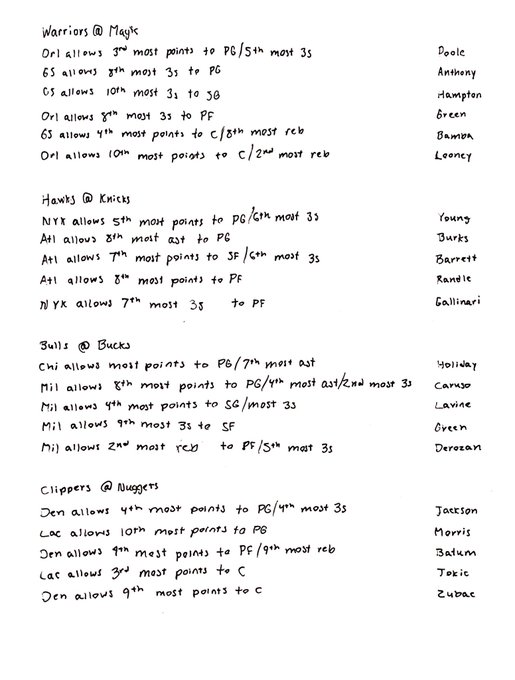 Warriors @ Magic
Orl allows 3rd most points to PG/5th most 3s Poole
GS allows 8th most 3s to PG Anthony
GS allows 10th most 3s to SG Hampton
Orl allows 8th most 3s to PF Green
GS allows 4th most points to C/8th most reb Bamba
Orl allows 10th most points to C/2nd most reb Looney
Hawks @ Knicks
NYK allows 5th most points to PG/6th most 3s Young
Atl allows 8th most ast to PG Burks
Atl allows 7th most points to SF/6th most 3s Barrett
Atl allows 8th most points to PF Randle
NYK allows 7th most 3s to PF Gallinari
Bulls @ Bucks
Chi allows most points to PG/7th most ast Holiday
Mil allows 8th most points to PG/4th most ast/2nd most 3s Caruso
Mil allows 4th most points to SG/most 3s Lavine
Mil allows 9th most 3s to SF Green
Mil allows 2nd most reb to PF/5th most 3s Derozan
Clippers @ Nuggets
Den allows 4th most points to PG/4th most 3s Jackson
Lac allows 10th most points to PG Morris
Den allows 9th most points to PF/9th most reb Batum
Lac allows 3rd most points to C Jokic
Den allows 9th most points to C Zubac